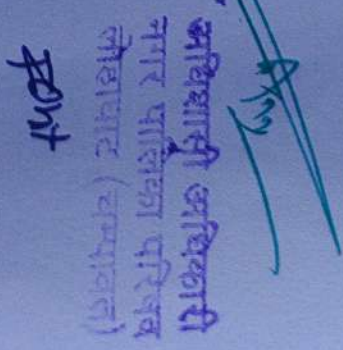 अधिशासी अधिकारी
नगर पालिका परिषद
लोहाघाट (चम्पावत)